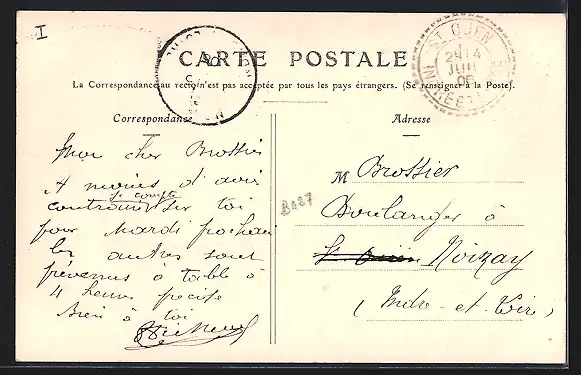 I
CARTE POSTALE
La Correspondance au recto n'est pas acceptée par tous les pays étrangers. (Se renseigner à la Poste).
ST OUEN
24
JUIL
06
Correspondance
Adresse
Mon cher Brossier
A moins d'avis
contraire je compte sur toi
pour mardi prochain
les autres sont
prévenus à table à
4 heures précise
Bien à toi
M Brossier
Boulanger à
St Ouen Noizay
(Indre-et-Loire)
B127